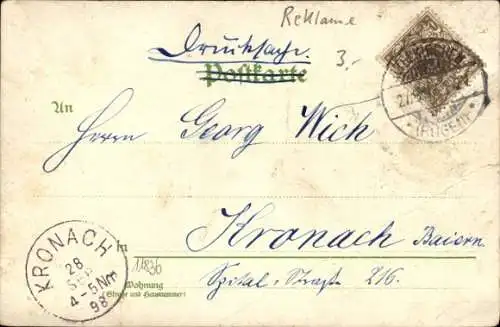 Reklame
Drucksache.
3,-
Postkarte
An
Herrn Georg Wich
Kronach Baiern
In
Spital-Straße 216.
Wohnung
(Straße und Hausnummer)
KRONACH
28
SEP
4-5 Nm
98
(RÜGEN)